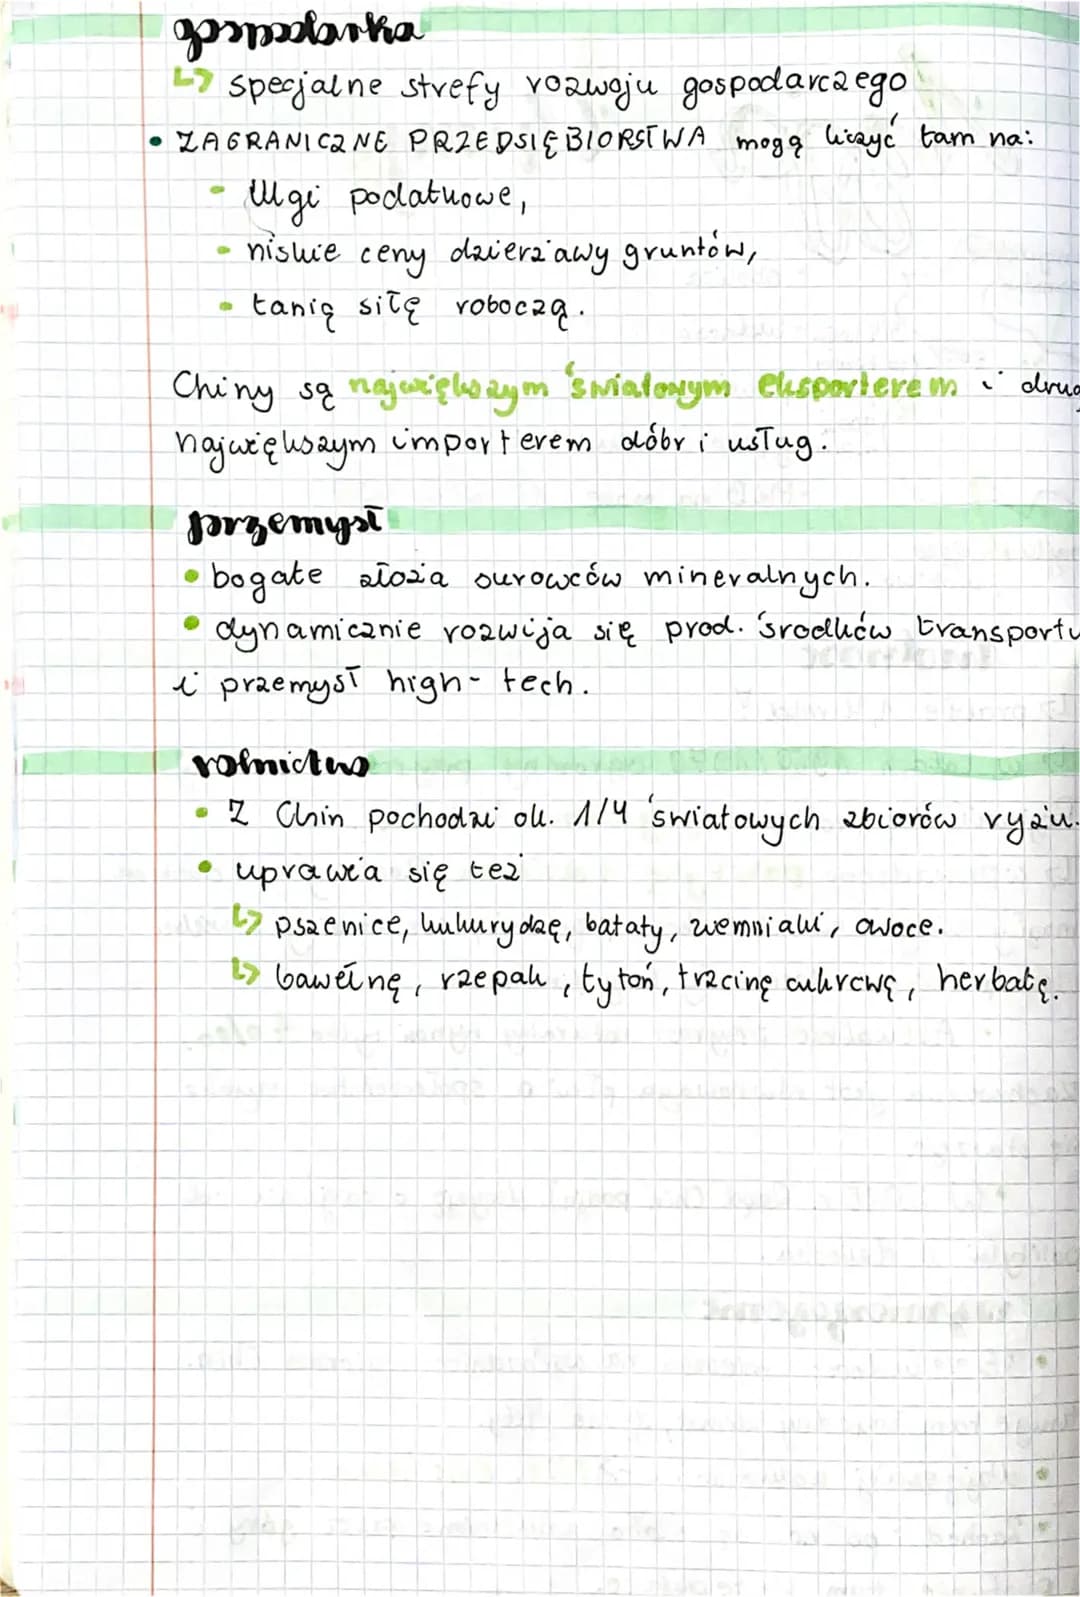 gospodarka
↳ specjalne strefy rozwoju gospodarczego
• ZAGRANICZNE PRZEDSIĘBIORSTWA mogą liczyć tam na:
- Ulgi podatkowe,
- niskie ceny dzierżawy gruntów,
- tanią siłę roboczą.
Chiny są największym światowym eksporterem i drug
największym importerem dóbr i usług.
przemysł
• bogate złoża surowców mineralnych.
• dynamicznie rozwija się prod. środków transportu
i przemysł high-tech.
rolnictwo
• Z Chin pochodzi ok. 1/4 światowych zbiorów ryżu.
• uprawia się też
↳ pszenice, kukurydzę, bataty, ziemniaki, owoce.
↳ bawełnę, rzepak, tytoń, trzcinę cukrową, herbatę.